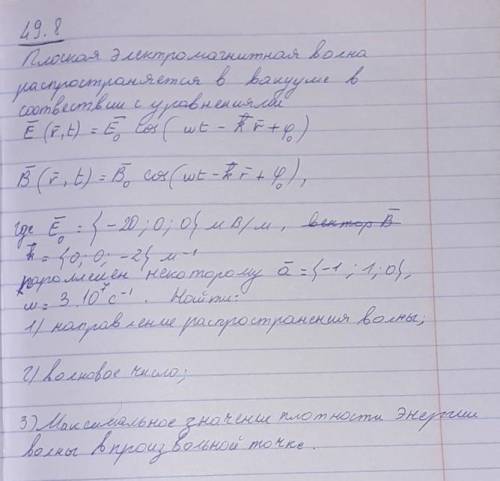 49.8
Плоская электромагнитная волна
распространяется в вакууме в
соотвествии с уравнениями
E̅(r̅,t) = E̅₀ cos(ωt - k⃗ r̅ + φ₀)
B̅(r̅,t) = B̅₀ cos(ωt - k⃗ r̅ + φ₀),
где E̅₀ = {-20; 0; 0} мВ/м, вектор B̅
k⃗ = {0; 0; -2} м⁻¹
параллелен некоторому a̅ = {-1; 1; 0},
ω = 3·10⁷ с⁻¹. Найти:
1) направление распространения волны;
2) волновое число;
3) Максимальное значение плотности энергии
волны в произвольной точке.